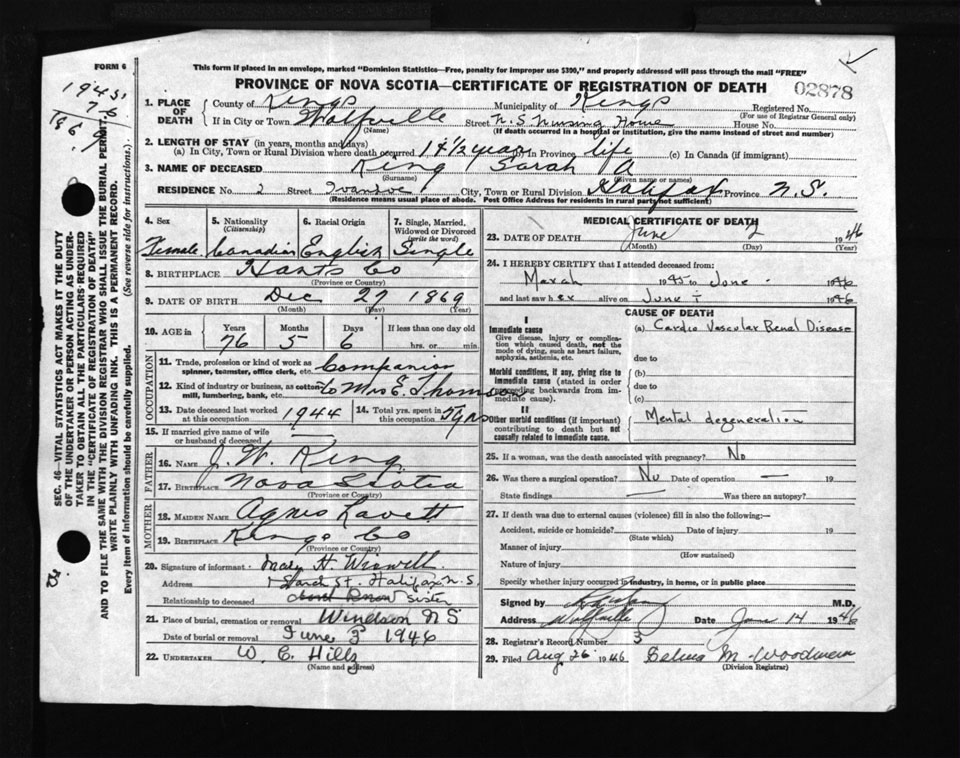 FORM 6
This form if placed in an envelope, marked "Dominion Statistics—Free, penalty for improper use $300," and properly addressed will pass through the mail "FREE"
PROVINCE OF NOVA SCOTIA—CERTIFICATE OF REGISTRATION OF DEATH
02878
1945.
7-6
186.9
1. PLACE OF DEATH
County of Kings Municipality of Kings Registered No.
(For use of Registrar General only)
If in City or Town Wolfville Street N.S Nursing Home House No.
(Name) (If death occurred in a hospital or institution, give the name instead of street and number)
2. LENGTH OF STAY (in years, months and days)
(a) In City, Town or Rural Division where death occurred 1 4½ years in Province life (c) In Canada (if immigrant)
3. NAME OF DECEASED King Sarah A
(Surname) (Given name or names)
RESIDENCE No. 2 Street Ivanhoe City, Town or Rural Division Halifax Province N.S.
(Residence means usual place of abode. Post Office Address for residents in rural parts not sufficient)
4. Sex 5. Nationality (Citizenship) 6. Racial Origin 7. Single, Married, Widowed or Divorced (write the word)
Female Canadian English Single
8. BIRTHPLACE Hants Co
(Province or Country)
9. DATE OF BIRTH Dec 27 1869
(Month) (Day) (Year)
10. AGE in Years Months Days If less than one day old
76 5 6 hrs. or min.
OCCUPATION
11. Trade, profession or kind of work as spinner, teamster, office clerk, etc. Companion
12. Kind of industry or business, as cotton mill, lumbering, bank, etc. to Mrs E. Thomson
13. Date deceased last worked at this occupation 1944 14. Total yrs. spent in this occupation 5 yrs
15. If married give name of wife or husband of deceased —
FATHER
16. NAME J. W. King
17. BIRTHPLACE Nova Scotia
(Province or Country)
MOTHER
18. MAIDEN NAME Agnes Lavett
19. BIRTHPLACE Kings Co
(Province or Country)
20. Signature of informant Mary H.
Address St. Halifax N.S.
Relationship to deceased sister
21. Place of burial, cremation or removal Windsor N S
Date of burial or removal June 3 1946
22. UNDERTAKER W. C. Hills
(Name and address)
MEDICAL CERTIFICATE OF DEATH
23. DATE OF DEATH June 2 1946
(Month) (Day) (Year)
24. I HEREBY CERTIFY that I attended deceased from:
March 1945 to June 1946
and last saw her alive on June 1 1946
CAUSE OF DEATH
I
Immediate cause (a) Cardio Vascular Renal Disease
Give disease, injury or complication which caused death, not the mode of dying, such as heart failure, asphyxia, asthenia, etc.
due to
Morbid conditions, if any, giving rise to immediate cause (stated in order proceeding backwards from immediate cause).
(b)
due to
(c)
II
Other morbid conditions (if important) contributing to death but not causally related to immediate cause.
Mental degeneration
25. If a woman, was the death associated with pregnancy? No
26. Was there a surgical operation? No Date of operation — 19
State findings — Was there an autopsy?
27. If death was due to external causes (violence) fill in also the following:—
Accident, suicide or homicide? Date of injury 19
(State which)
Manner of injury
(How sustained)
Nature of injury
Specify whether injury occurred in industry, in home, or in public place
Signed by M.D.
Address Wolfville Date June 14 1946
28. Registrar's Record Number 3
29. Filed Aug 26 1946 Selina M. Woodman
(Division Registrar)
SEC. 46—VITAL STATISTICS ACT MAKES IT THE DUTY
OF THE UNDERTAKER OR PERSON ACTING AS UNDER-
TAKER TO OBTAIN ALL THE PARTICULARS REQUIRED
IN THE "CERTIFICATE OF REGISTRATION OF DEATH"
AND TO FILE THE SAME WITH THE DIVISION REGISTRAR WHO SHALL ISSUE THE BURIAL PERMIT.
WRITE PLAINLY WITH UNFADING INK. THIS IS A PERMANENT RECORD.
Every item of information should be carefully supplied. (See reverse side for instructions.)